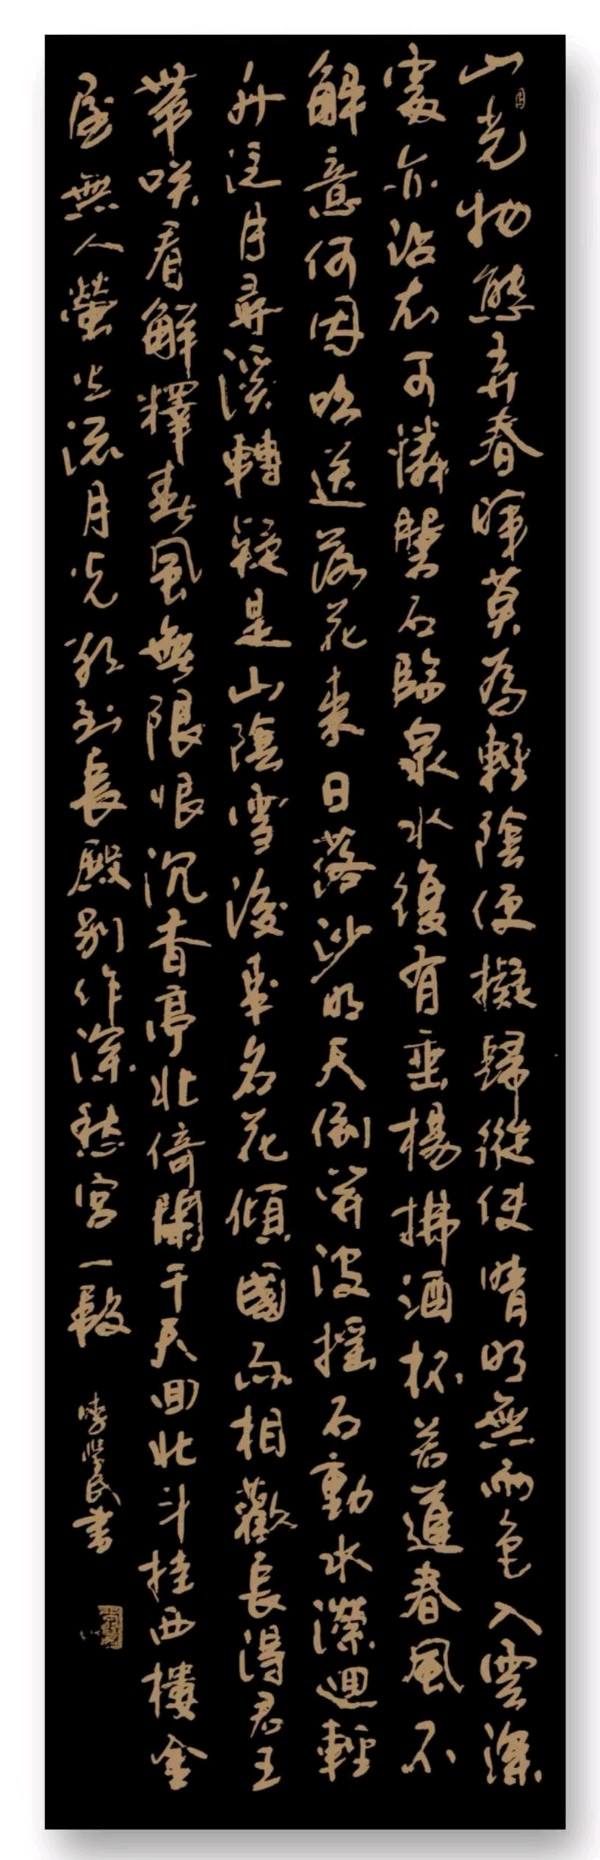 山光物態弄春暉莫為輕陰便擬歸縱使晴明無雨色入雲深
處亦沾衣可憐盤石臨泉水復有垂楊拂酒杯若道春風不
解意何因吹送落花來日落沙明天倒開波搖石動水瀠迴輕
舟泛月尋溪轉疑是山陰雪後來名花傾國兩相歡長得君王
帶咲看解釋春風無限恨沉香亭北倚闌干天回北斗挂西樓金
屋無人螢火流月光欲到長殿別作深愁宮一段
李學民書